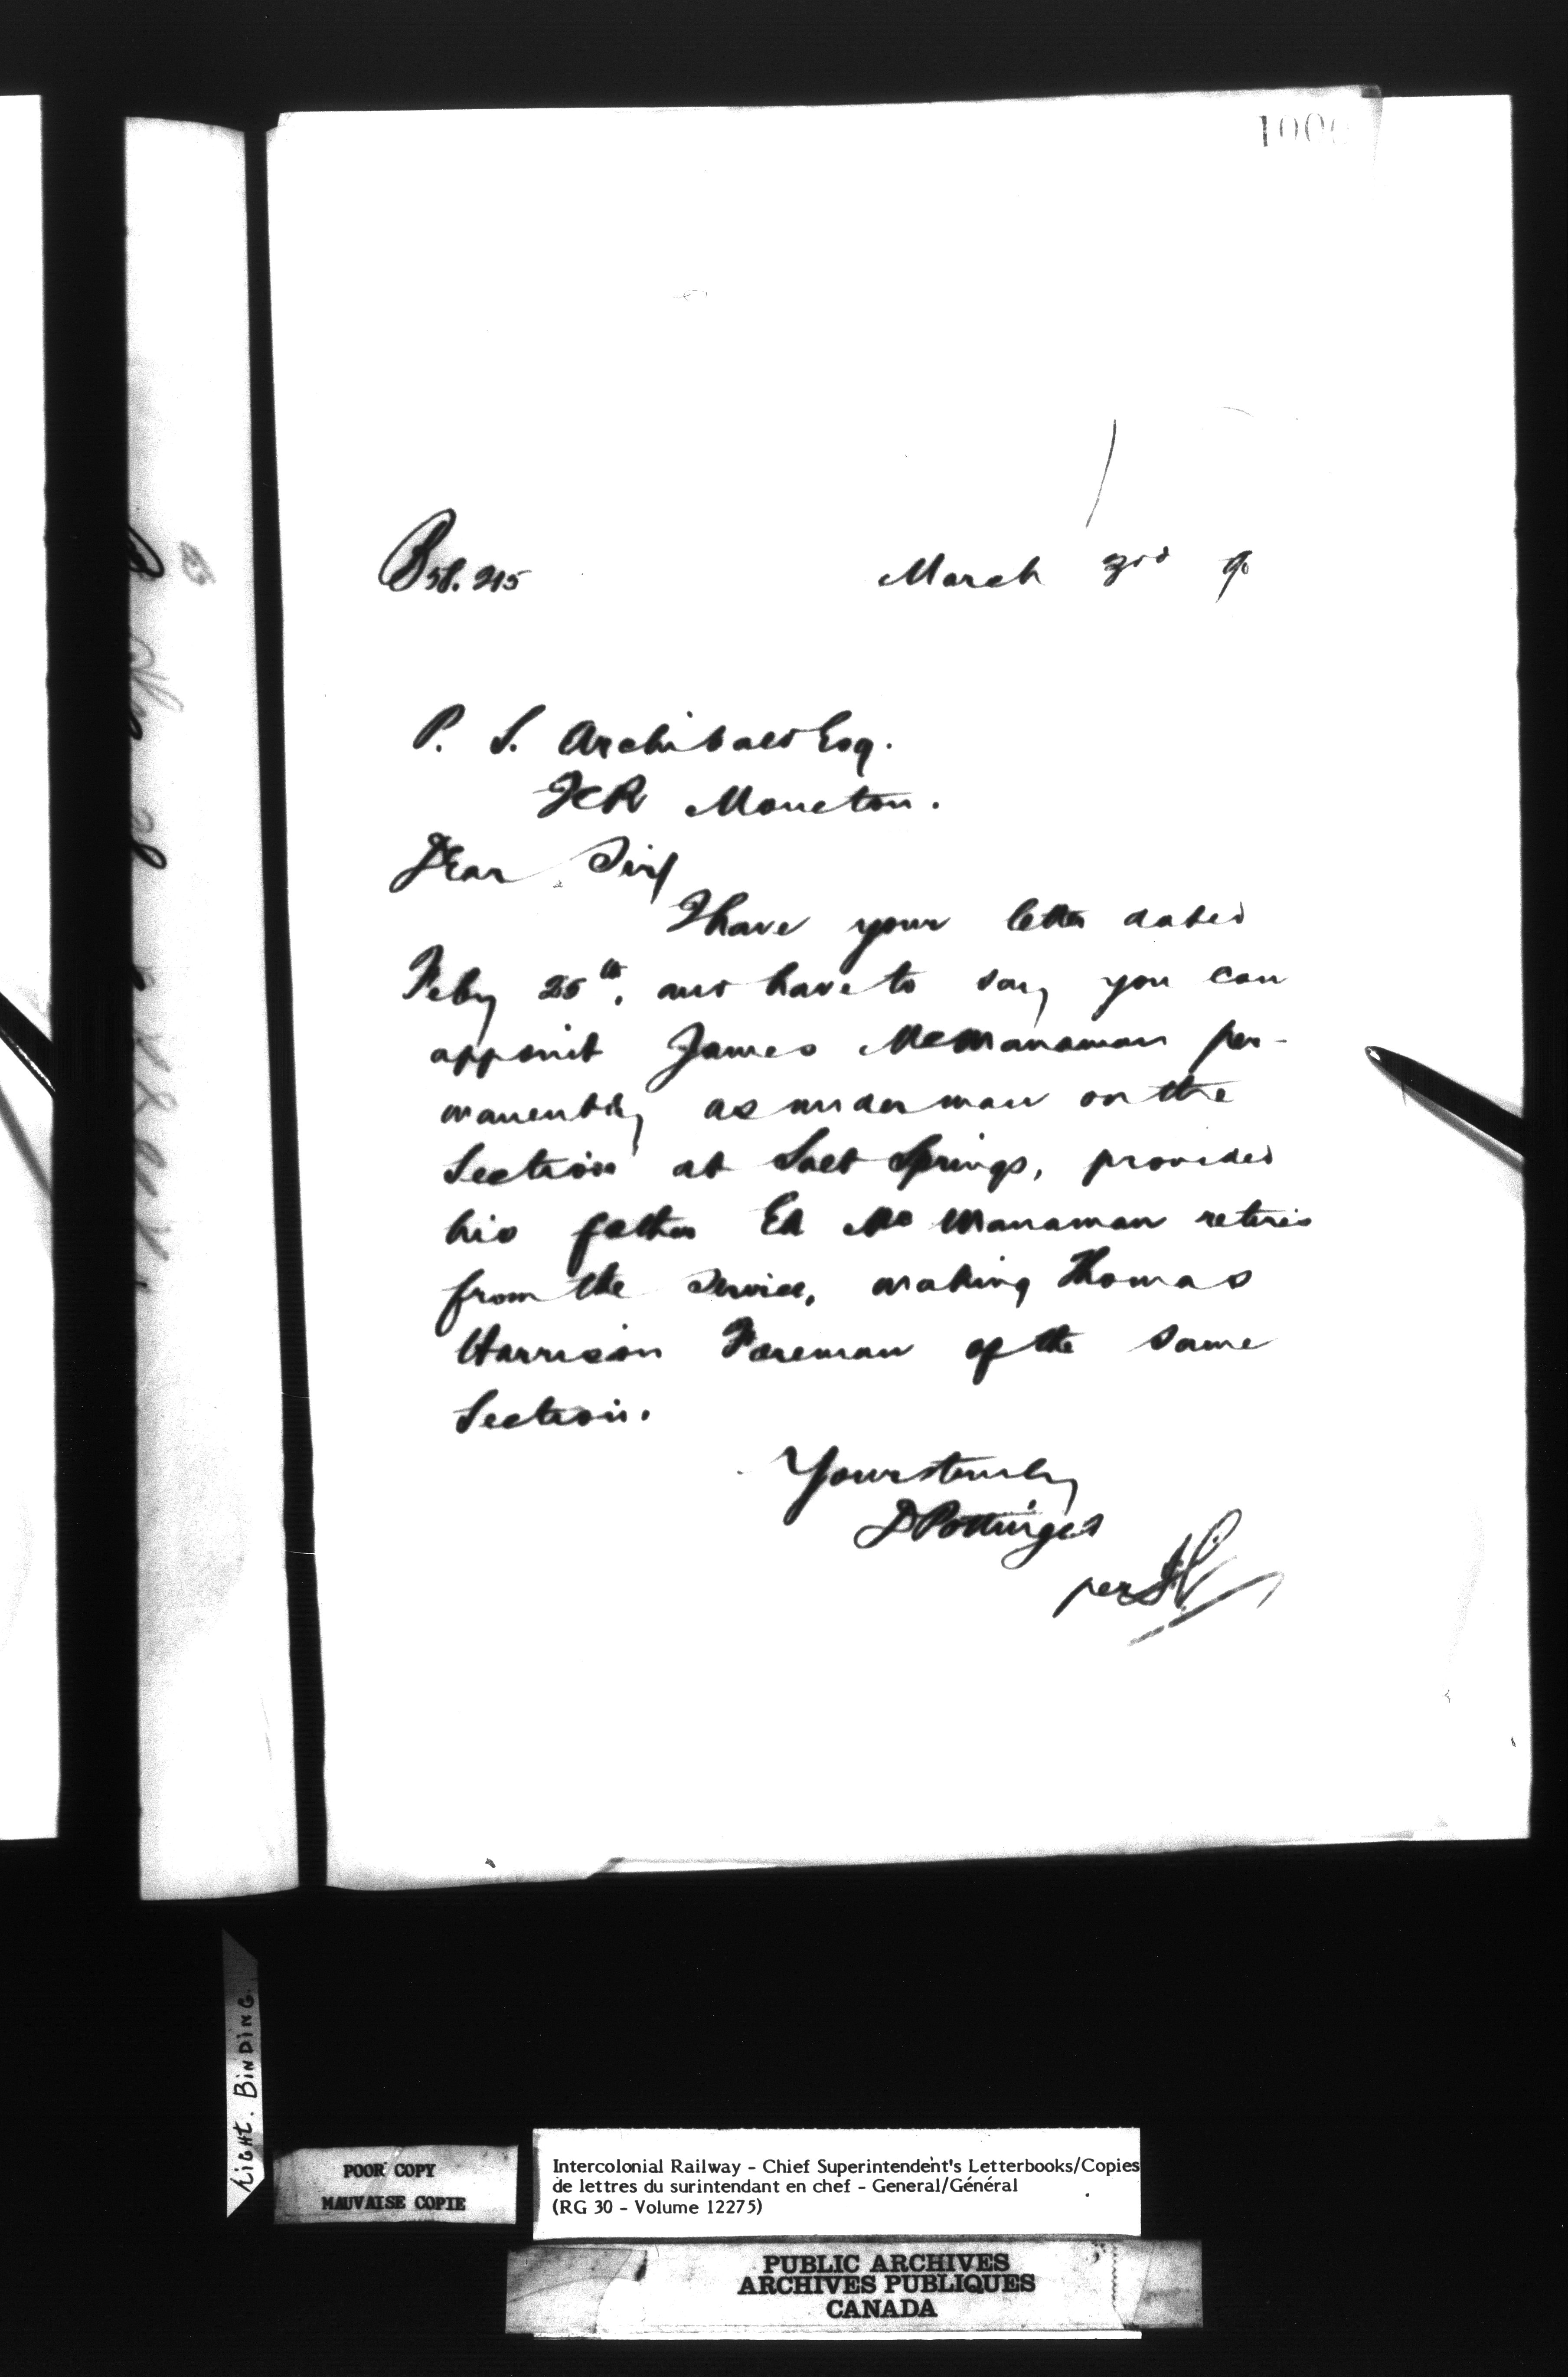 1000
B 58. 215 March 3rd 90
P. S. Archibald Esq.
ICR Moncton.
Dear Sir/
I have your letter dated
Feby 25th, and have to say you can
appoint James McManaman per-
manently as underman on the
Section at Salt Springs, provided
his father Ed McManaman retires
from the service, making Thomas
Harrison Foreman of the same
Section.
Yours truly
D Pottinger
per
TIGHT. BINDING.
POOR COPY
MAUVAISE COPIE
Intercolonial Railway - Chief Superintendent's Letterbooks/Copies
de lettres du surintendant en chef - General/Général
(RG 30 - Volume 12275)
PUBLIC ARCHIVES
ARCHIVES PUBLIQUES
CANADA